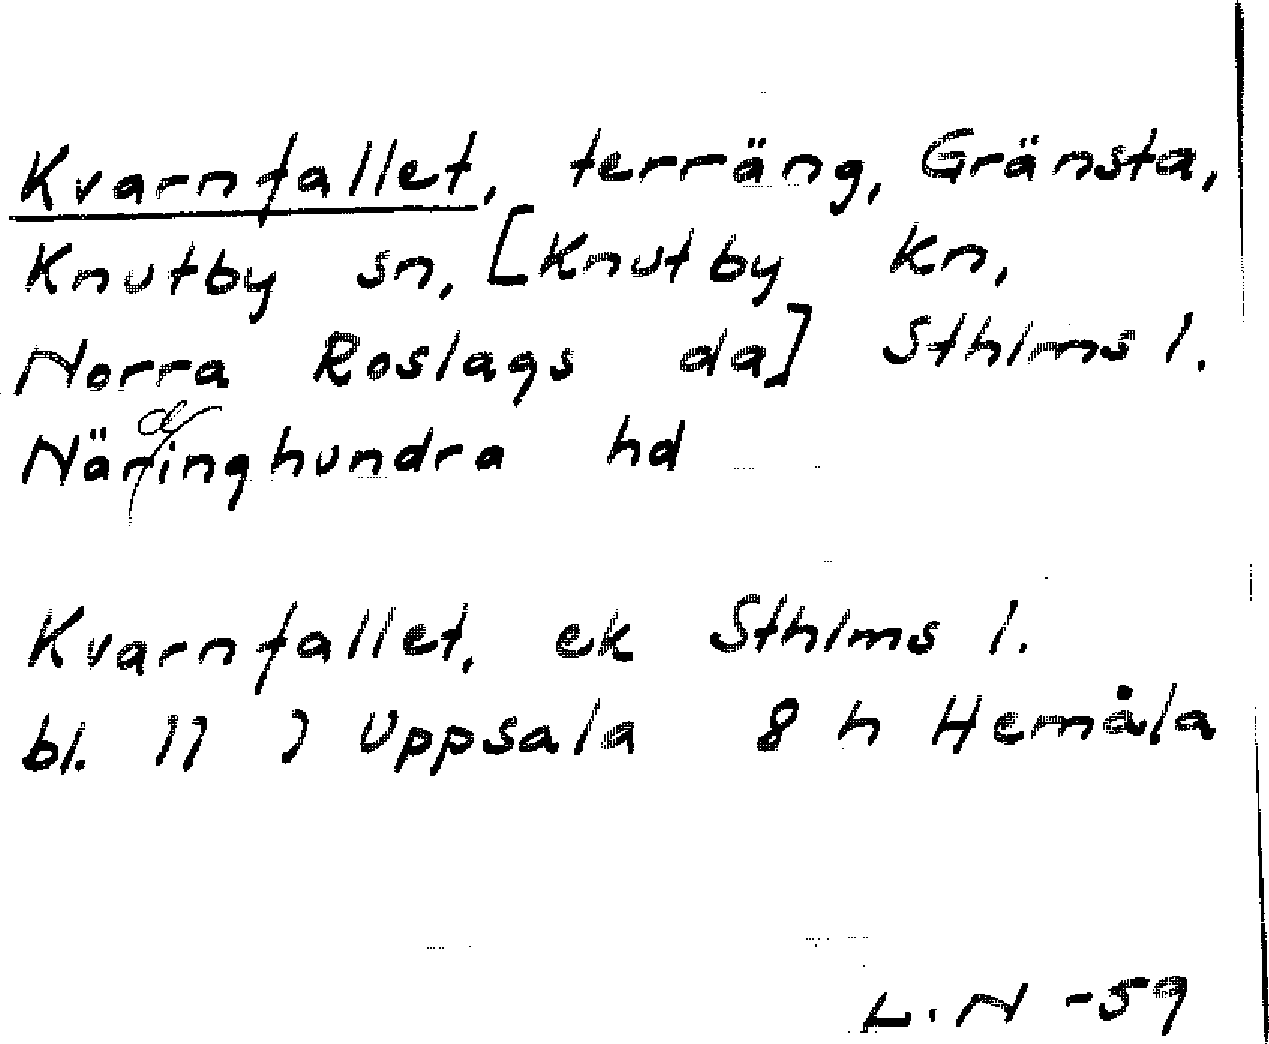 Kvarnfallet, terräng, Gränsta,
Knutby sn, [Knutby kn,
Norra Roslags da] Sthlms l.
Närdinghundra hd
Kvarnfallet, ek Sthlms l.
bl. 11 I Uppsala 8 h Hemåla
L.N -59